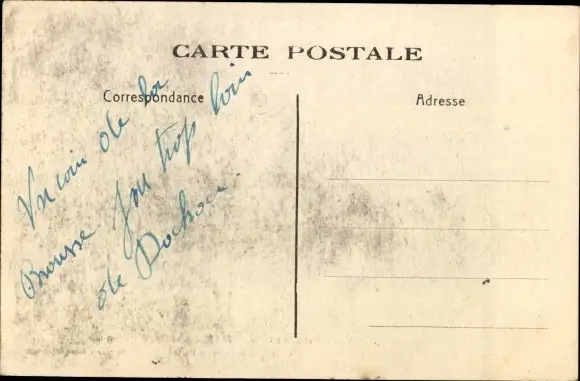 CARTE POSTALE
Correspondance
Adresse
Un coin de la
Brousse
trop loin
de